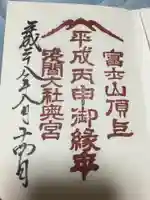 富士山頂上
平成丙申御縁年
浅間大社奥宮
八年八月十四日